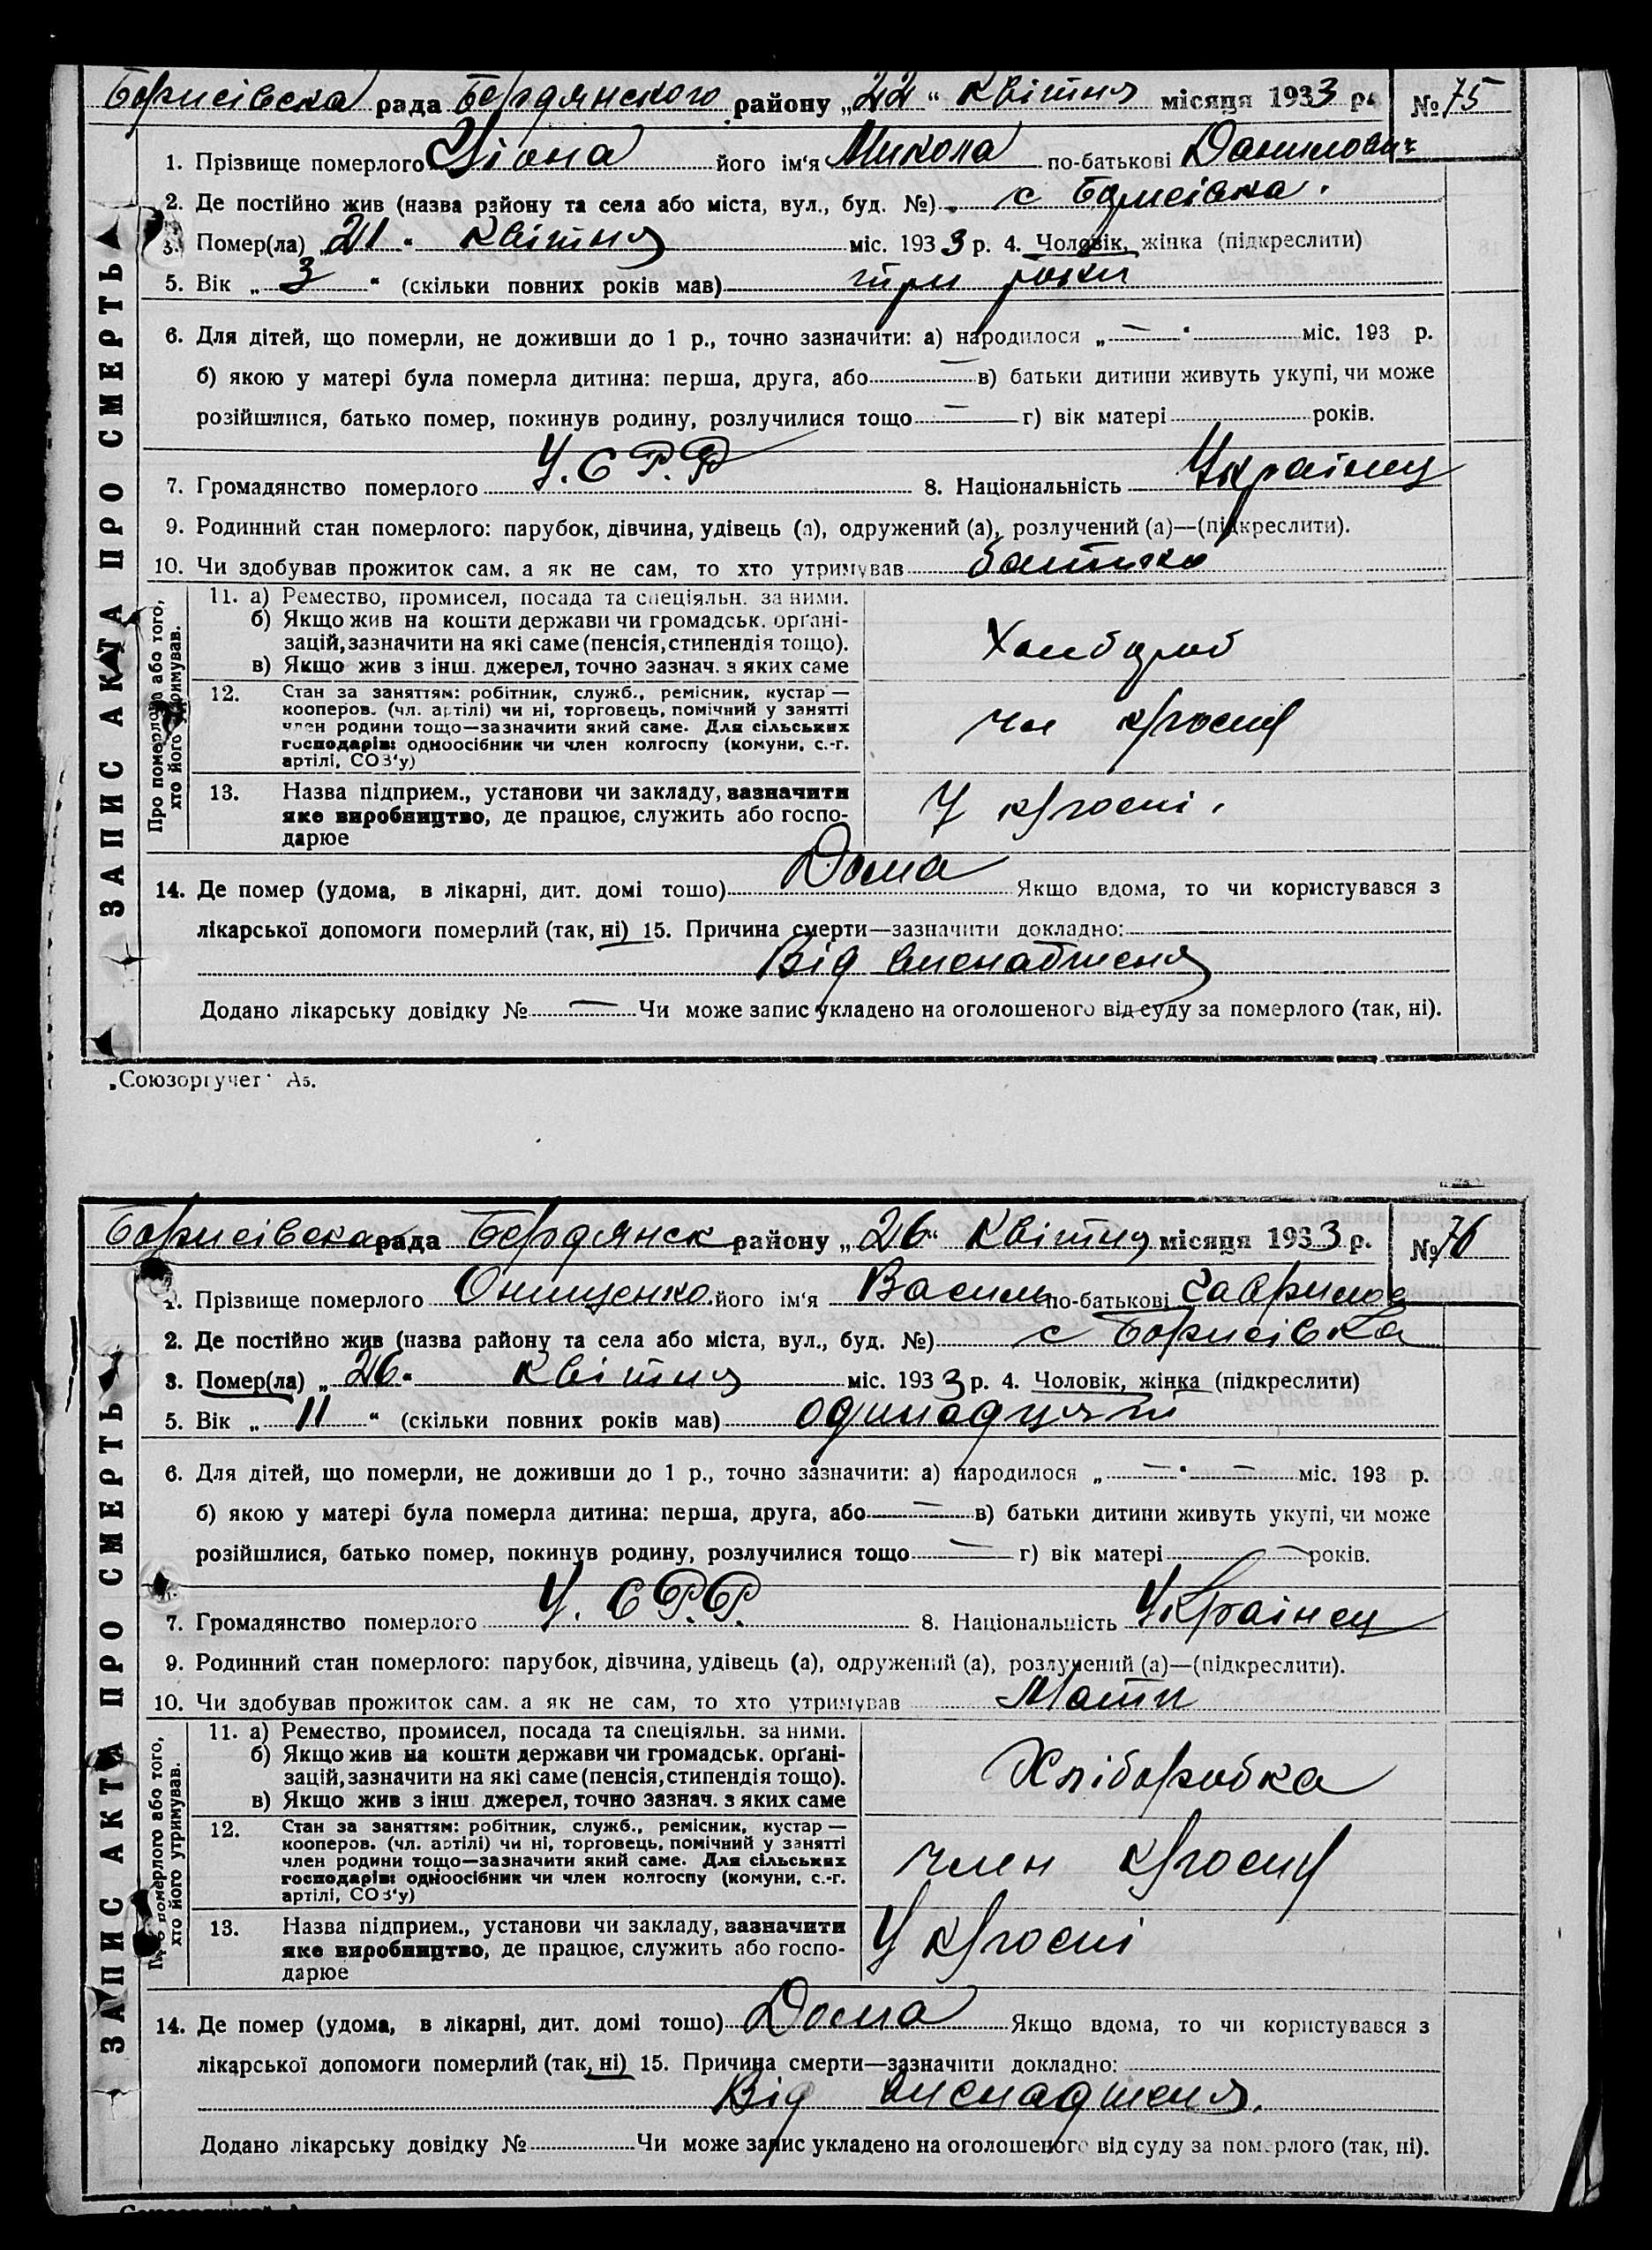 Борисівська рада Бердянського району „22“ квітня місяця 1933 р. № 75
ЗАПИС АКТА ПРО СМЕРТЬ
1. Прізвище померлого його ім‘я Микола по-батькові Данилович
2. Де постійно жив (назва району та села або міста, вул., буд. №) с Борисівка.
3. Помер(ла) „21“ квітня міс. 1933 р. 4. Чоловік, жінка (підкреслити)
5. Вік „3“ (скільки повних років мав) три роки
6. Для дітей, що померли, не доживши до 1 р., точно зазначити: а) народилося „—“ міс. 193 р.
б) якою у матері була померла дитина: перша, друга, або — в) батьки дитини живуть укупі, чи може
розійшлися, батько помер, покинув родину, розлучилися тощо — г) вік матері років.
7. Громадянство померлого У.С.Р.Р 8. Національність Українец
9. Родинний стан померлого: парубок, дівчина, удівець (а), одружений (а), розлучений (а)—(підкреслити).
10. Чи здобував прожиток сам, а як не сам, то хто утримував батько
Про померлого або того, хто його утримував.
11. а) Ремество, промисел, посада та спеціяльн. за ними.
б) Якщо жив на кошти держави чи громадськ. орґані-
зацій, зазначити на які саме (пенсія, стипендія тощо).
в) Якщо жив з інш. джерел, точно зазнач. з яких саме
Хлибороб
12. Стан за заняттям: робітник, служб., ремісник, кустар —
кооперов. (чл. артілі) чи ні, торговець, помічний у занятті
член родини тощо—зазначити який саме. Для сільських
господарів: одноосібник чи член колгоспу (комуни, с.-г.
артілі, СОЗ‘у)
чл к/госпу
13. Назва підприєм., установи чи закладу, зазначити
яке виробництво, де працює, служить або госпо-
дарює
У к/госпі.
14. Де помер (удома, в лікарні, дит. домі тощо) Дома Якщо вдома, то чи користувався з
лікарської допомоги померлий (так, ні) 15. Причина смерти—зазначити докладно:
Від виснабженя
Додано лікарську довідку № — Чи може запис укладено на оголошеного від суду за померлого (так, ні).
„Союзоргучет“ А5.
Борисівська рада Бердянск району „26“ квітня місяця 1933 р. № 76
ЗАПИС АКТА ПРО СМЕРТЬ
1. Прізвище померлого Онищенко його ім‘я Василь по-батькові Гаврилов
2. Де постійно жив (назва району та села або міста, вул., буд. №) с Борисівка
3. Помер(ла) „26“ квітня міс. 1933 р. 4. Чоловік, жінка (підкреслити)
5. Вік „11“ (скільки повних років мав) одинадцять
6. Для дітей, що померли, не доживши до 1 р., точно зазначити: а) народилося „—“ — міс. 193 р.
б) якою у матері була померла дитина: перша, друга, або — в) батьки дитини живуть укупі, чи може
розійшлися, батько помер, покинув родину, розлучилися тощо — г) вік матері — років.
7. Громадянство померлого У.СРР. 8. Національність Українец
9. Родинний стан померлого: парубок, дівчина, удівець (а), одружений (а), розлучений (а)—(підкреслити).
10. Чи здобував прожиток сам, а як не сам, то хто утримував Мати
Про померлого або того, хто його утримував.
11. а) Ремество, промисел, посада та спеціяльн. за ними.
б) Якщо жив на кошти держави чи громадськ. орґані-
зацій, зазначити на які саме (пенсія, стипендія тощо).
в) Якщо жив з інш. джерел, точно зазнач. з яких саме
Хліборобка
12. Стан за заняттям: робітник, служб., ремісник, кустар —
кооперов. (чл. артілі) чи ні, торговець, помічний у занятті
член родини тощо—зазначити який саме. Для сільських
господарів: одноосібник чи член колгоспу (комуни, с.-г.
артілі, СОЗ‘у)
член к/госпу
13. Назва підприєм., установи чи закладу, зазначити
яке виробництво, де працює, служить або госпо-
дарює
У к/госпі
14. Де помер (удома, в лікарні, дит. домі тощо) Дома Якщо вдома, то чи користувався з
лікарської допомоги померлий (так, ні) 15. Причина смерти—зазначити докладно:
Від виснадженя.
Додано лікарську довідку № Чи може запис укладено на оголошеного від суду за померлого (так, ні).